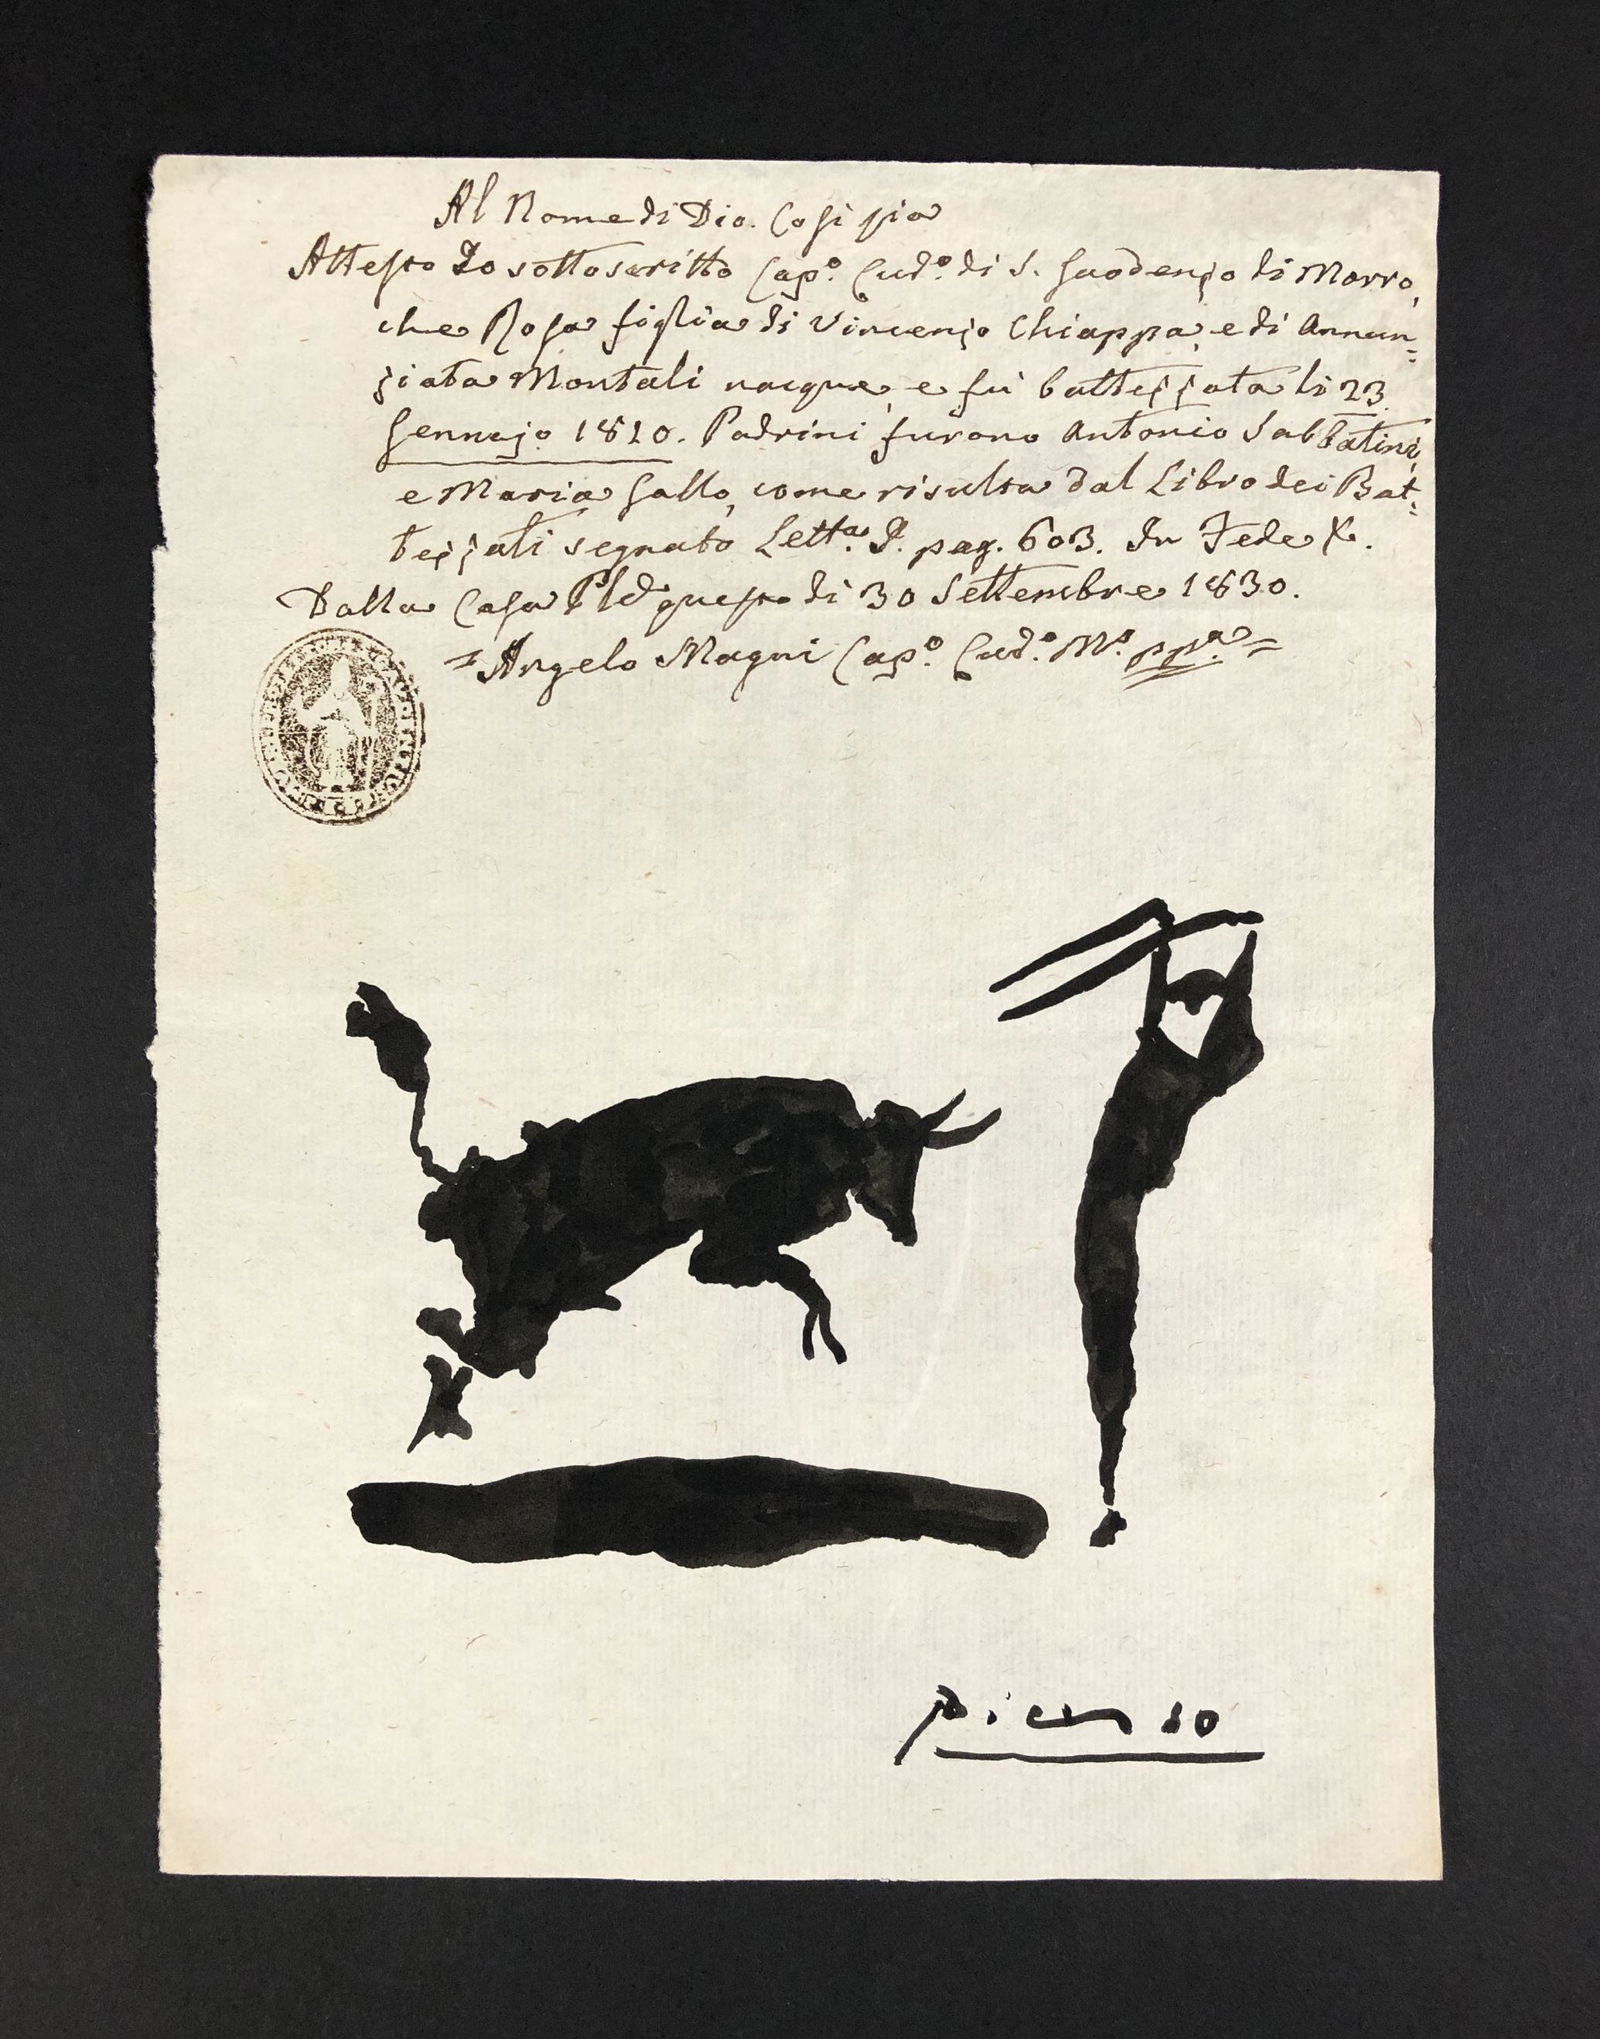 Al Nome di Dio. Cosi sia
Attesto Io sottoscritto Cap.º Cud.º di S. Gaudenzio di Morro,
che Rosa figlia di Vincenzo Chiappa, e di Annun=
ziata Montali nacque, e fù battezzata li 23
Gennajo 1810. Padrini furono Antonio Sabbatini,
e Maria Gallo, come risulta dal Libro dei Bat=
tezzati segnato Lett.ª pag. 603. In Fede
Dalla Casa questo dì 30 Settembre 1830.
= Angelo Magni Cap.º Cud.º M.º pp.ª =
Picasso